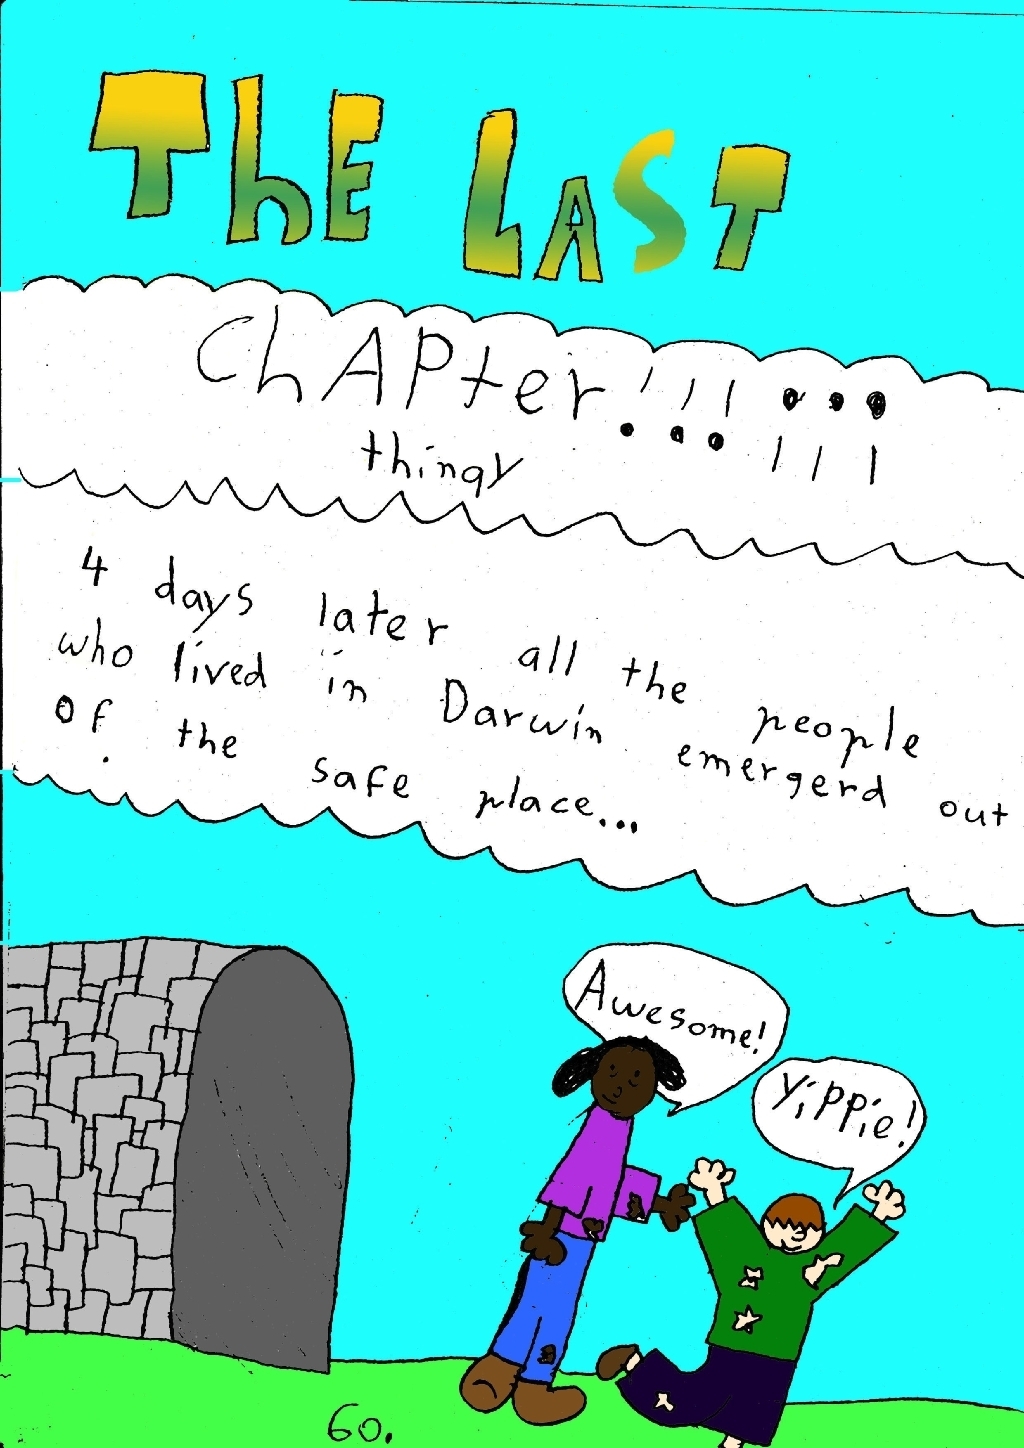 ThE LAST
ChAPter!!!¡¡¡
thingy
4 days later all the people
who lived in Darwin emergerd out
of the safe place...
Awesome!
Yippie!
60.